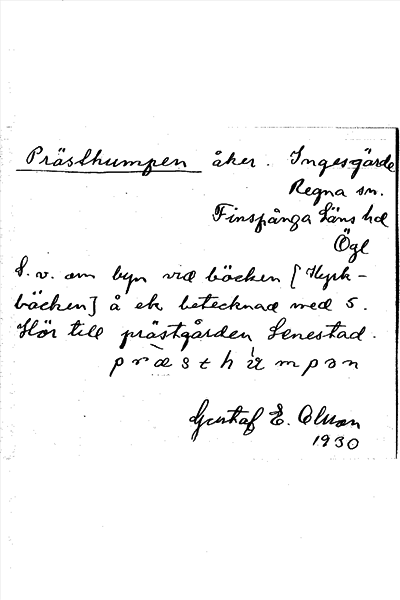 Prästhumpen åker. Ingesgärde
Regna sn.
Finspånga läns hd
Ögl
S. v. om byn vid bäcken [Kyrk-
bäcken] å ek betecknad med 5.
Hör till prästgården Senestad.
præsthumpən
Gustaf E. Olsson
1930